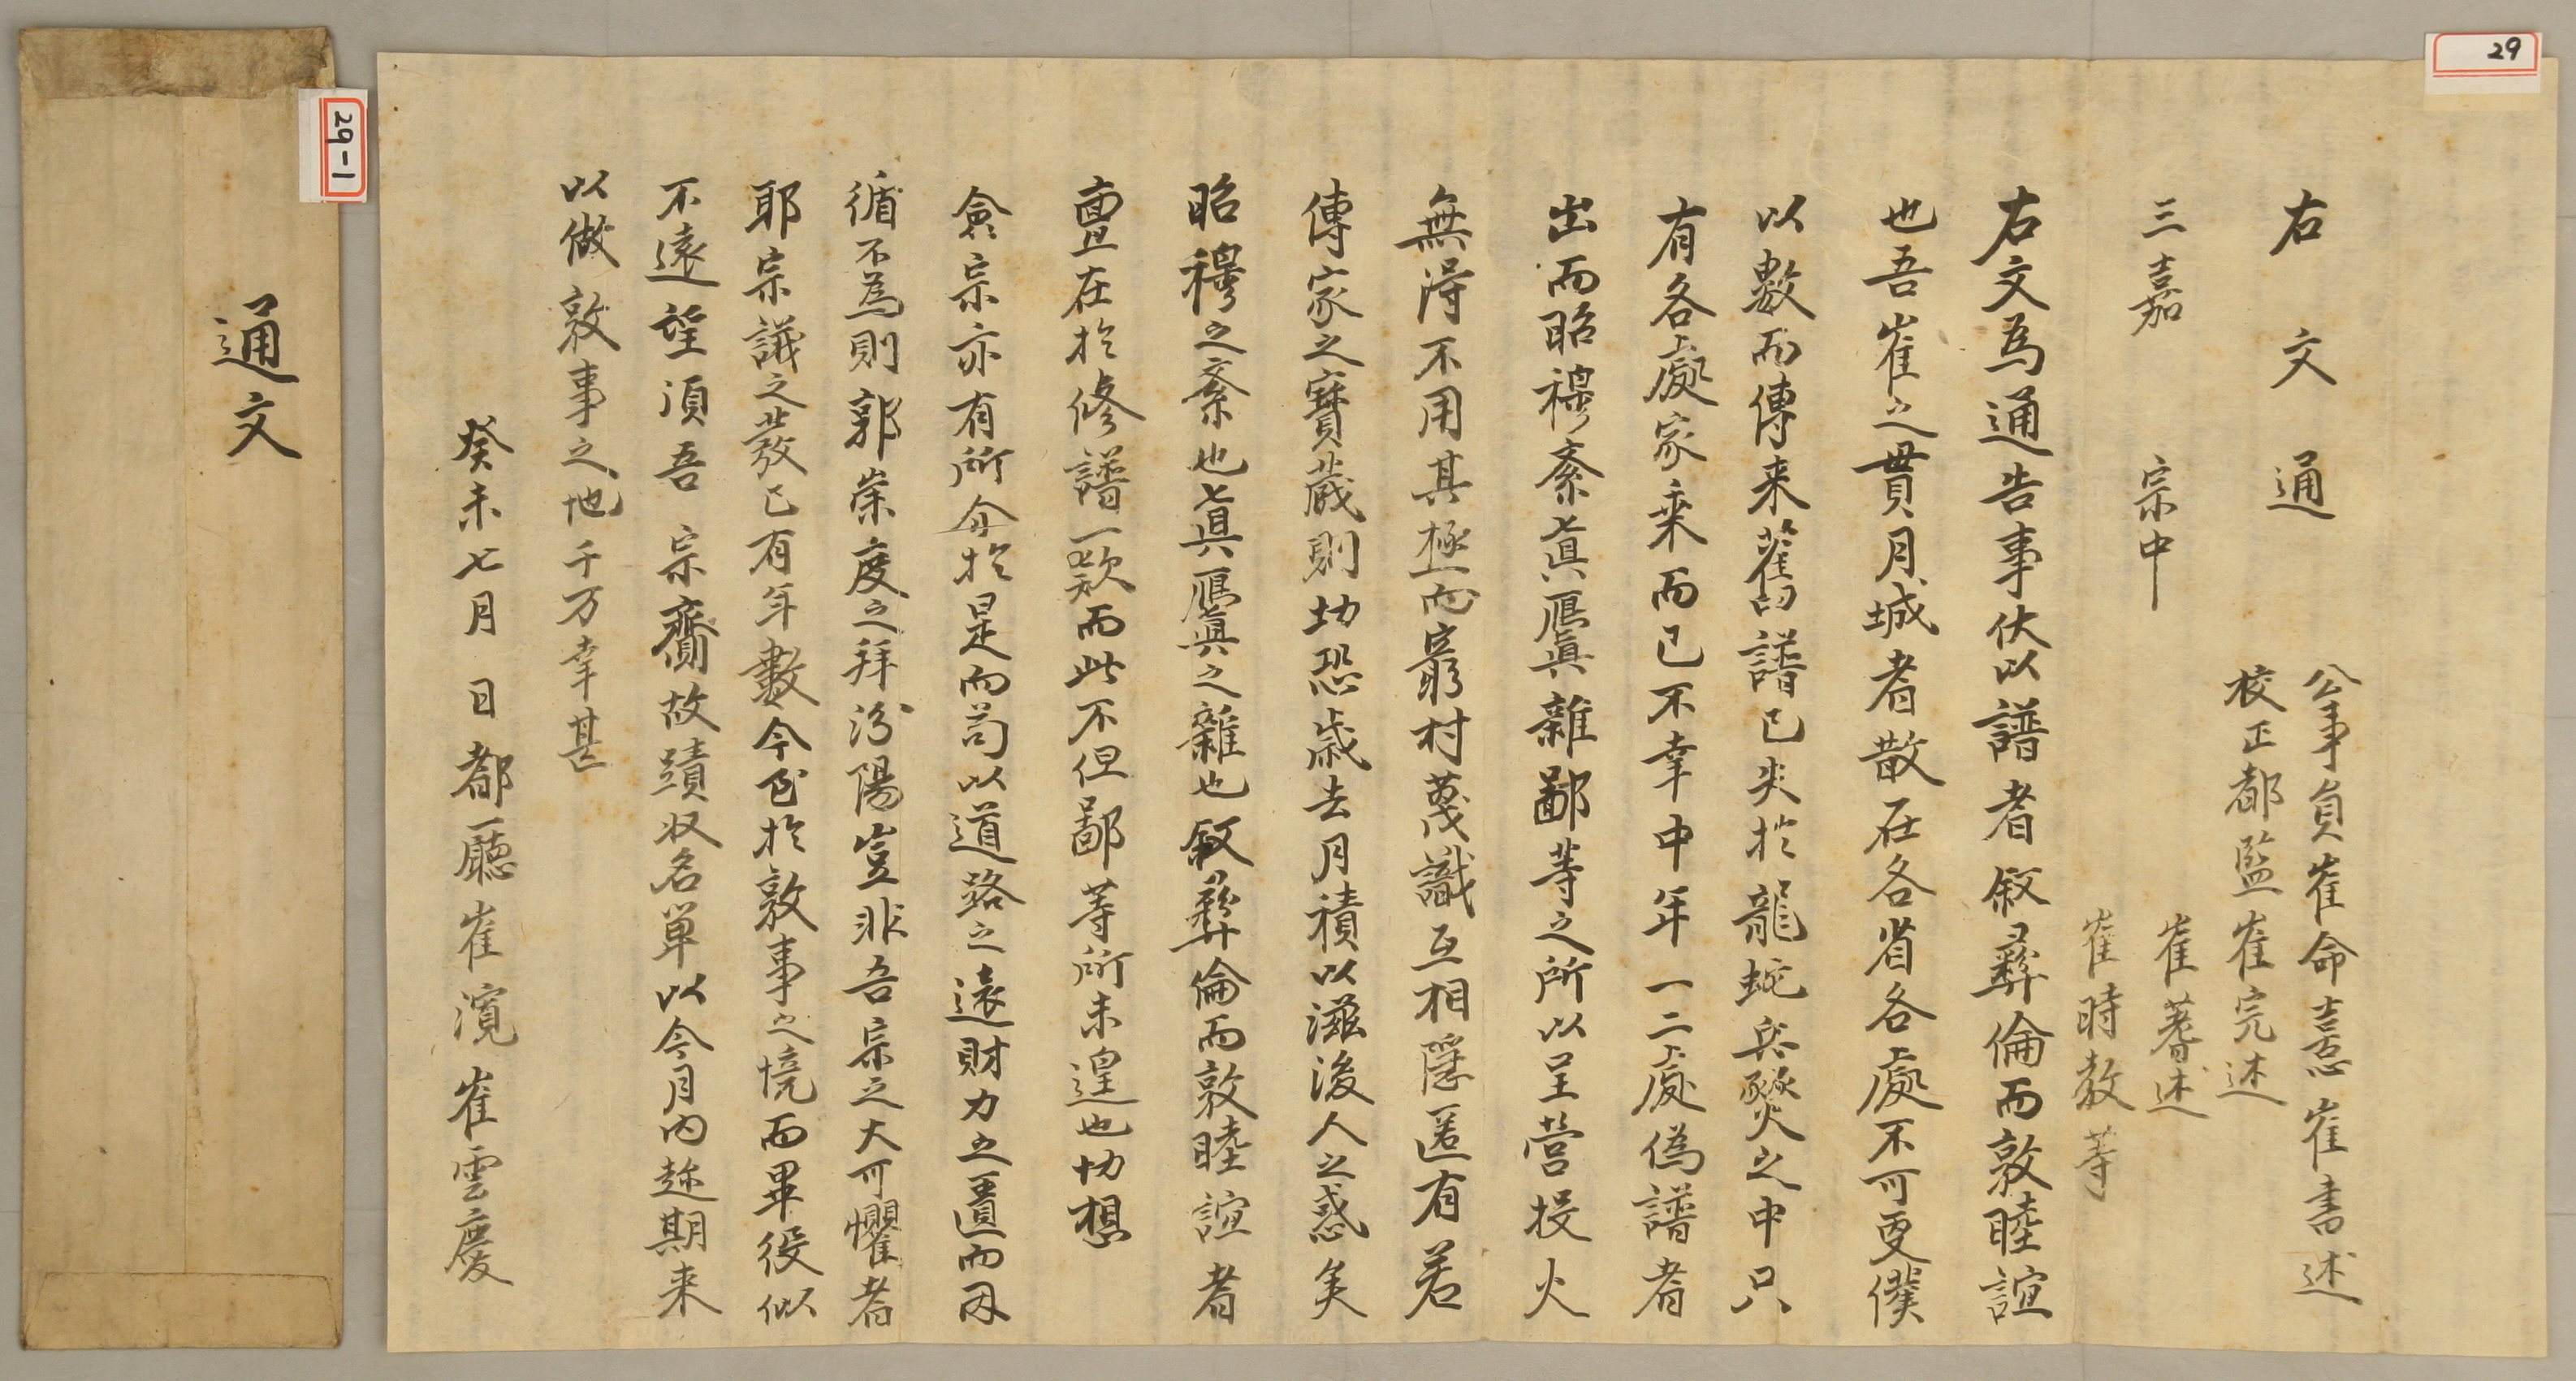 29
右文通
公事員崔命憙崔書述
校正都監崔完述
崔蓍述
崔時教等
三嘉宗中
右文爲通告事伏以譜者叙彛倫而敦睦誼
也吾崔之貫月城者散在各省各處不可更僕
以數而傳来舊譜已失於龍蛇兵燹之中只
有各處家乗而已不幸中年一二處偽譜者
出而昭穆紊眞贋雜鄙等之所以呈营投火
無淂不用其極而窮村蔑識互相隱匿有若
傳家之寶蔵則切恐歳去月積以滋後人之惑矣
昭穆之紊也眞贋之雜也叙彛倫而敦睦誼者
亶在於修譜一欵而此不但鄙等所未遑也切想
僉宗亦有所於是而苟以道路之遠財力之匱而因
循不爲則郭崇度之拜汾陽豈非吾宗之大可懼者
耶宗議之發已有年數今至於敦事之境而畢役似
不遠望湏吾宗齎故蹟收名単以今月內趂期来
以做敦事之地千万幸甚
癸未七月日都廳崔濱崔雲慶
29-1
通文